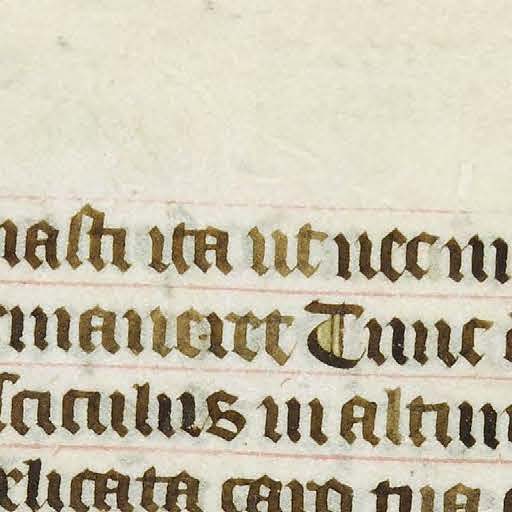 nasti ita ut nec in
rmaneret Tunc
sciculus in altum
elicata caro tua